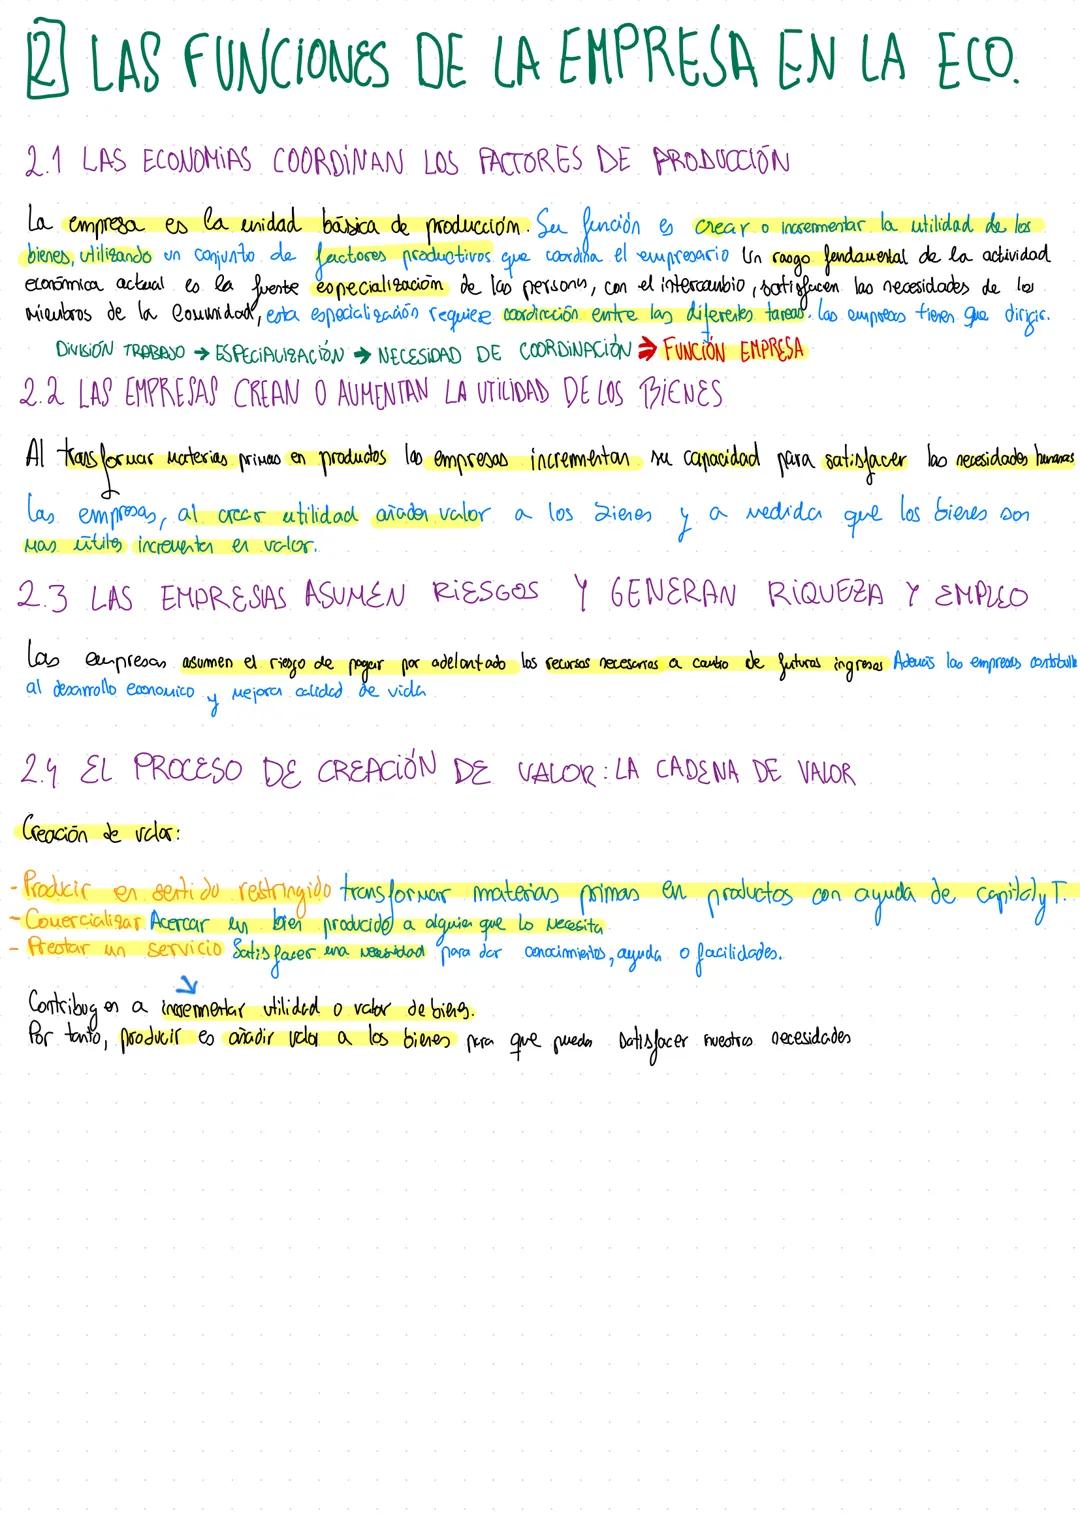 2 LAS FUNCIONES DE LA EMPRESA EN LA ECO.
2.1 LAS ECONOMIAS COORDINAN LOS FACTORES DE PRODUCCIÓN
La empresa es la unidad básica de producción. Su función es crear o incrementar la utilidad de los
bienes, utilizando un conjunto de factores productivos que coordina el empresario Un rasgo fundamental de la actividad
económica actual es la fuerte especialización de las persons, con el intercambio, satisfacen las necesidades de los
miembros de la comunidad, esta especialización requiere coordinación entre las diferentes tareas. Las empresas tienen que dirigir.
DIVISIÓN TRABAJO → ESPECIALIZACIÓN → NECESIDAD DE COORDINACIÓN → FUNCIÓN EMPRESA
2.2 LAS EMPRESAS CREAN O AUMENTAN LA UTILIDAD DE LOS BIENES
Al transformar materias primas en productos las empresas incrementan su capacidad para satisfacer las necesidades humanas
Las empresas, al crear utilidad añaden valor a los bienes y a medida que los bienes son
mas útiles incrementan en valor.
2.3 LAS EMPRESAS ASUMEN RIESGOS Y GENERAN RIQUEZA Y EMPLEO
Las empresas asumen el riesgo de pagar por adelantado los recursos necesarios a cambio de futuros ingresos Además las empresas contribuye
al desarrollo economico y mejora calidad de vida
2.4 EL PROCESO DE CREACIÓN DE VALOR: LA CADENA DE VALOR
Creación de valor:
- Producir en sentido restringido transformar materias primas en productos con ayuda de capital y T.
- Comercializar Acercar un bien producido a alguien que lo necesita
- Prestar un servicio Satisfacer una necesidad para dar conocimientos, ayuda o facilidades.
Contribuyen a incrementar utilidad o valor de bienes.
Por tanto, producir es añadir valor a los bienes para que puedan satisfacer nuestras necesidades